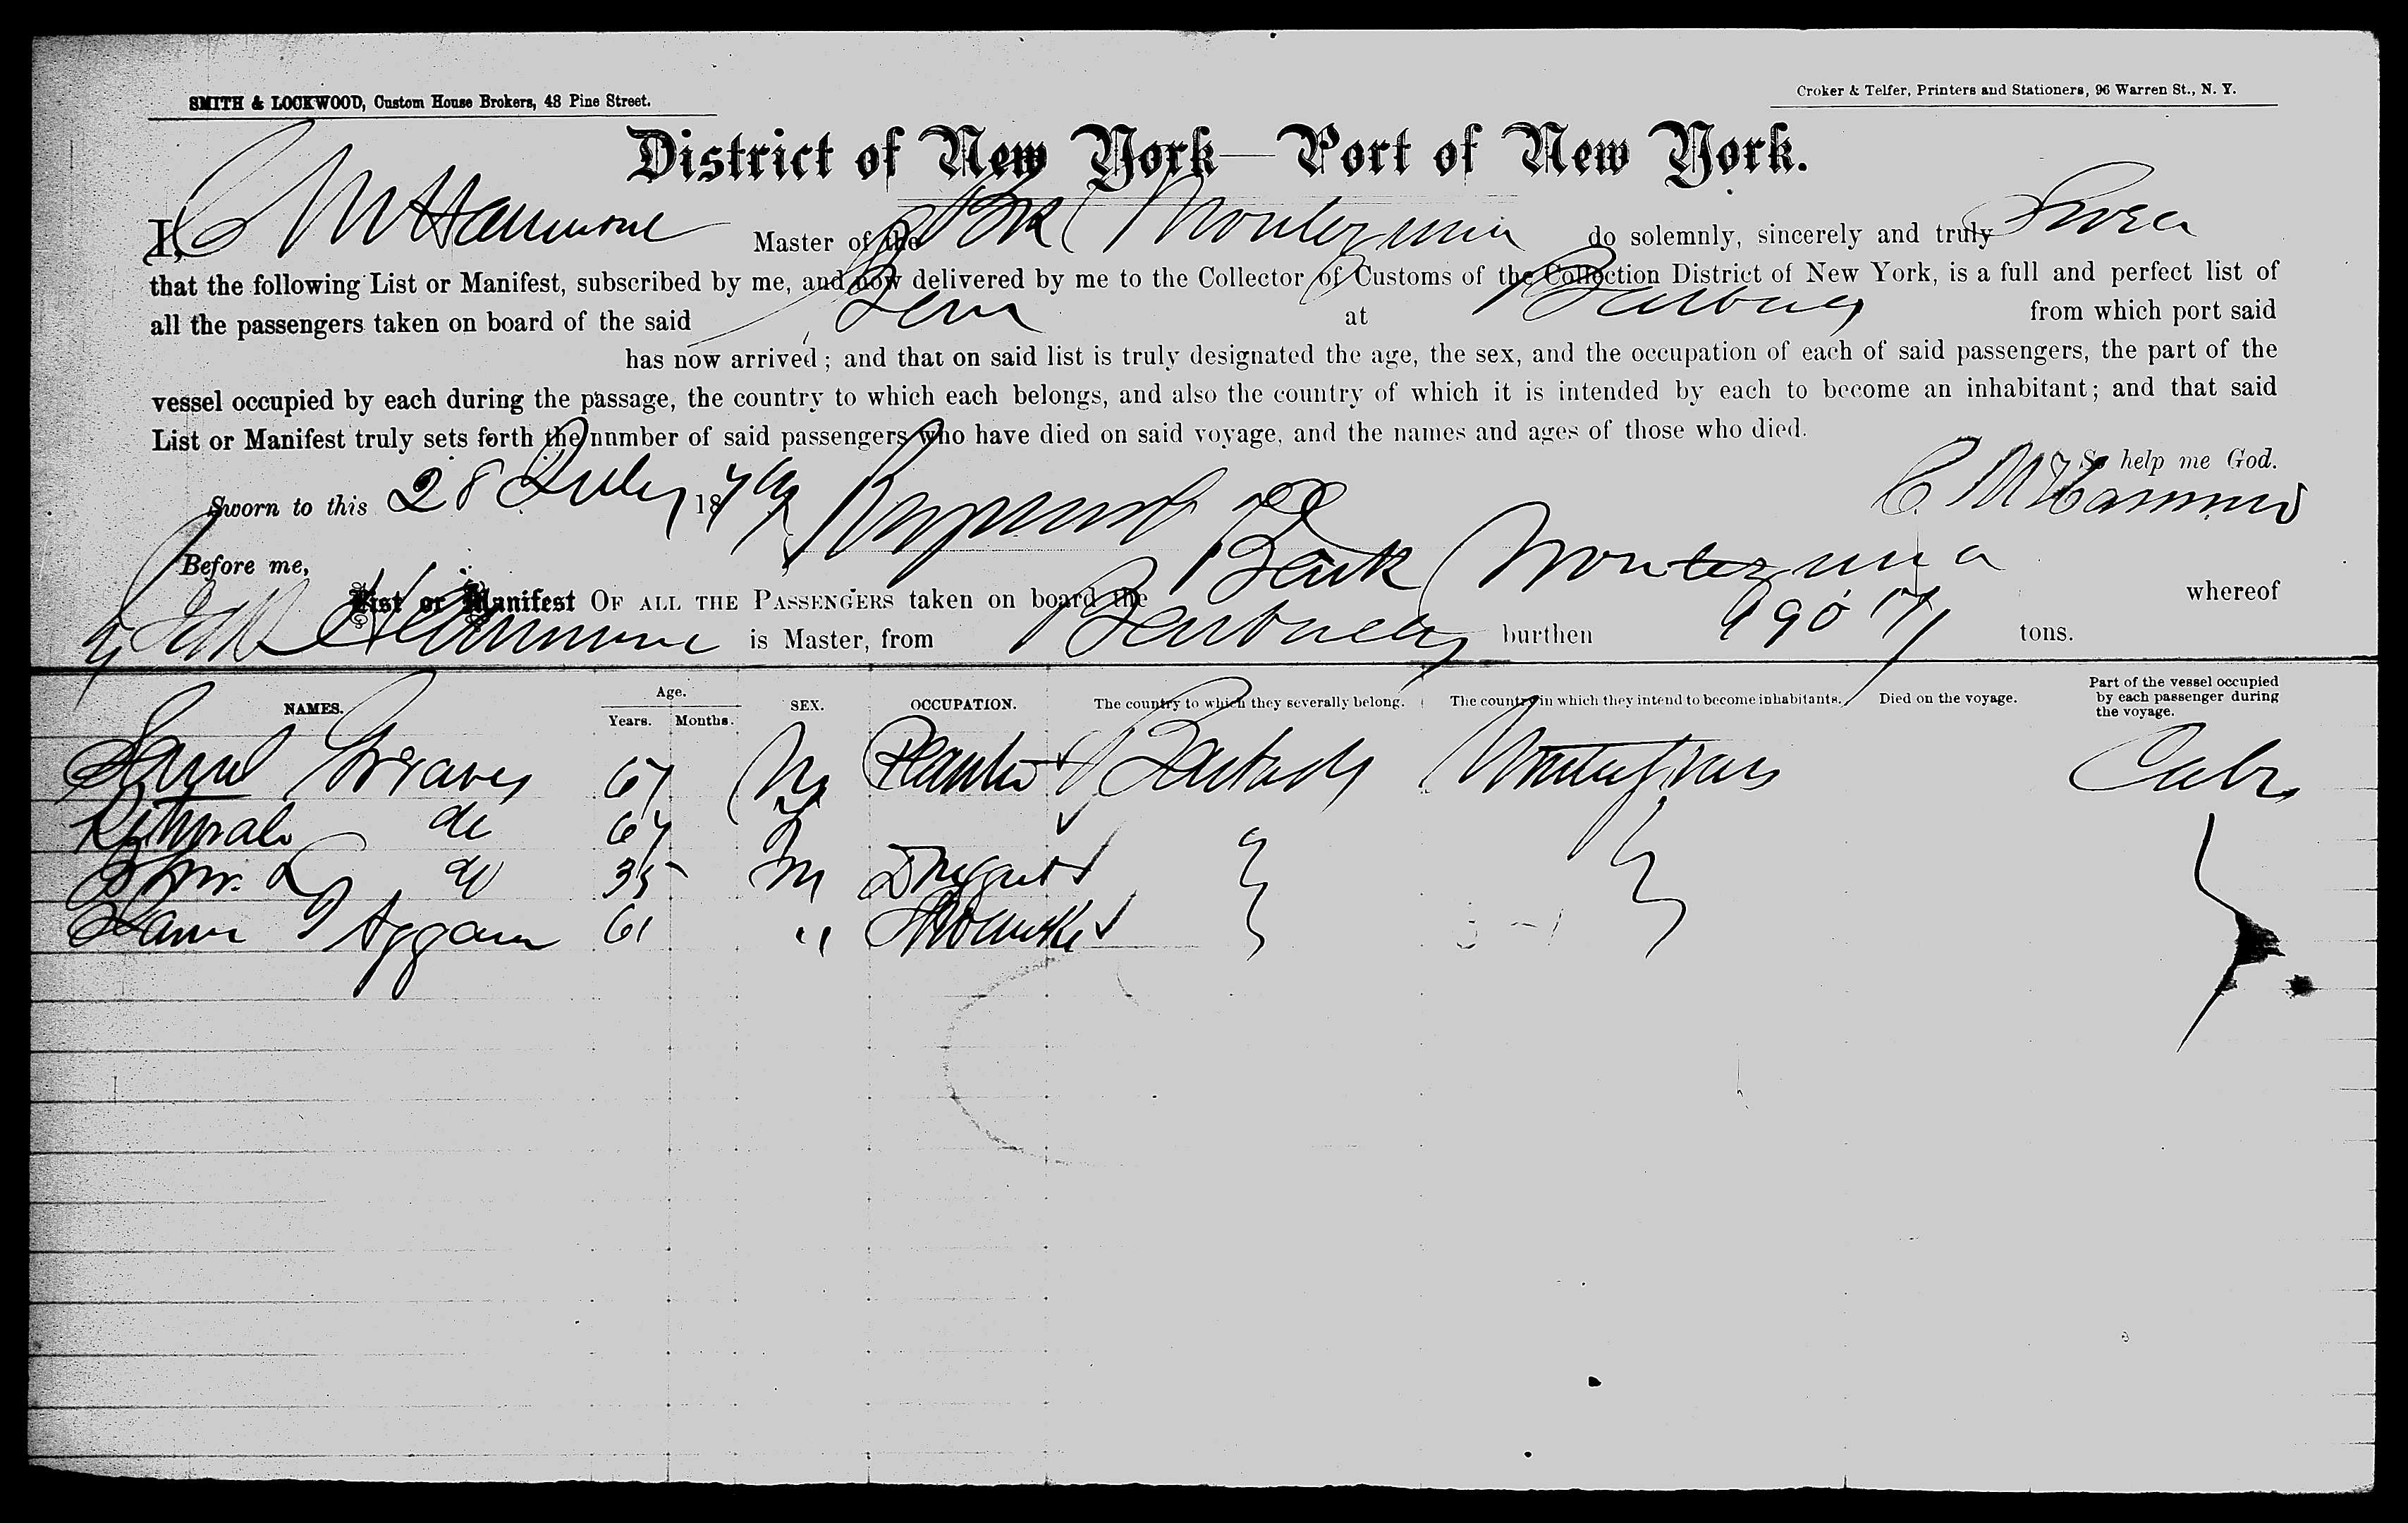 SMITH & LOCKWOOD, Custom House Brokers, 48 Pine Street.
Croker & Telfer, Printers and Stationers, 96 Warren St., N. Y.
District of New York—Port of New York.
I, C Master of the Bk Montezuma do solemnly, sincerely and truly Swear
that the following List or Manifest, subscribed by me, and now delivered by me to the Collector of Customs of the Collection District of New York, is a full and perfect list of
all the passengers taken on board of the said at Barbados from which port said
has now arrived; and that on said list is truly designated the age, the sex, and the occupation of each of said passengers, the part of the
vessel occupied by each during the passage, the country to which each belongs, and also the country of which it is intended by each to become an inhabitant; and that said
List or Manifest truly sets forth the nnmber of said passengers who have died on said voyage, and the names and ages of those who died.
So help me God.
Sworn to this 28 July 1879
Before me, Bark Montezuma
List or Manifest OF ALL THE PASSENGERS taken on board the whereof
is Master, from Barbados burthen tons.
NAMES. Age. Years. Months. SEX. OCCUPATION. The country to which they severally belong. The country in which they intend to become inhabitants. Died on the voyage. Part of the vessel occupied by each passenger during the voyage.
Graves 67 M Planter Barbados Cabin
do 67
do 35 M Druggist
61 "